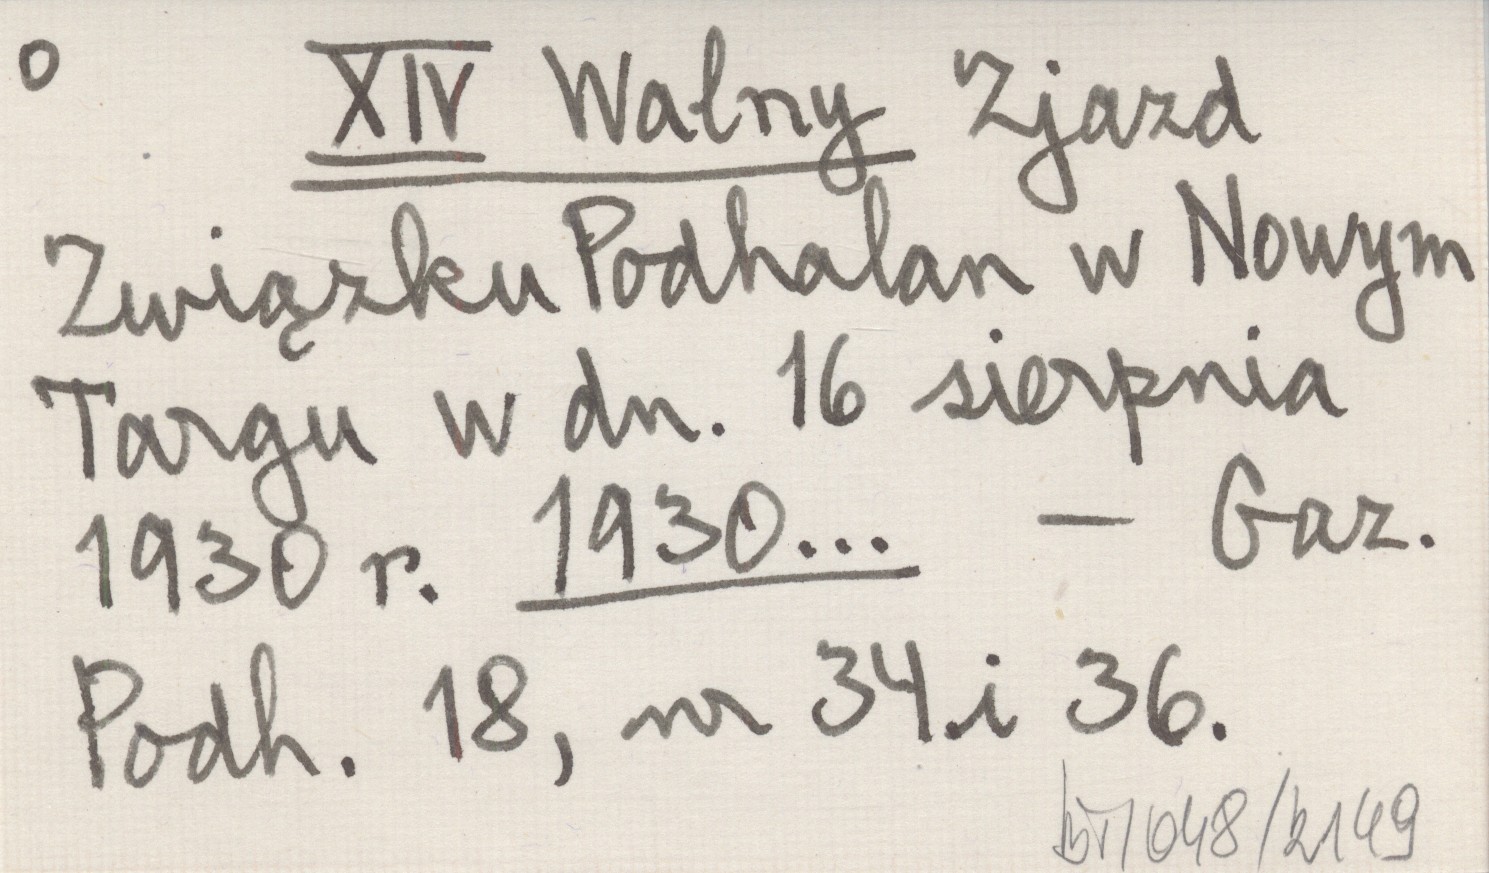 o XIV Walny Zjazd
Związku Podhalan w Nowym
Targu w dn. 16 sierpnia
1930 r. 1930... — Gaz.
Podh. 18, nr 34 i 36.
BT/048/2149